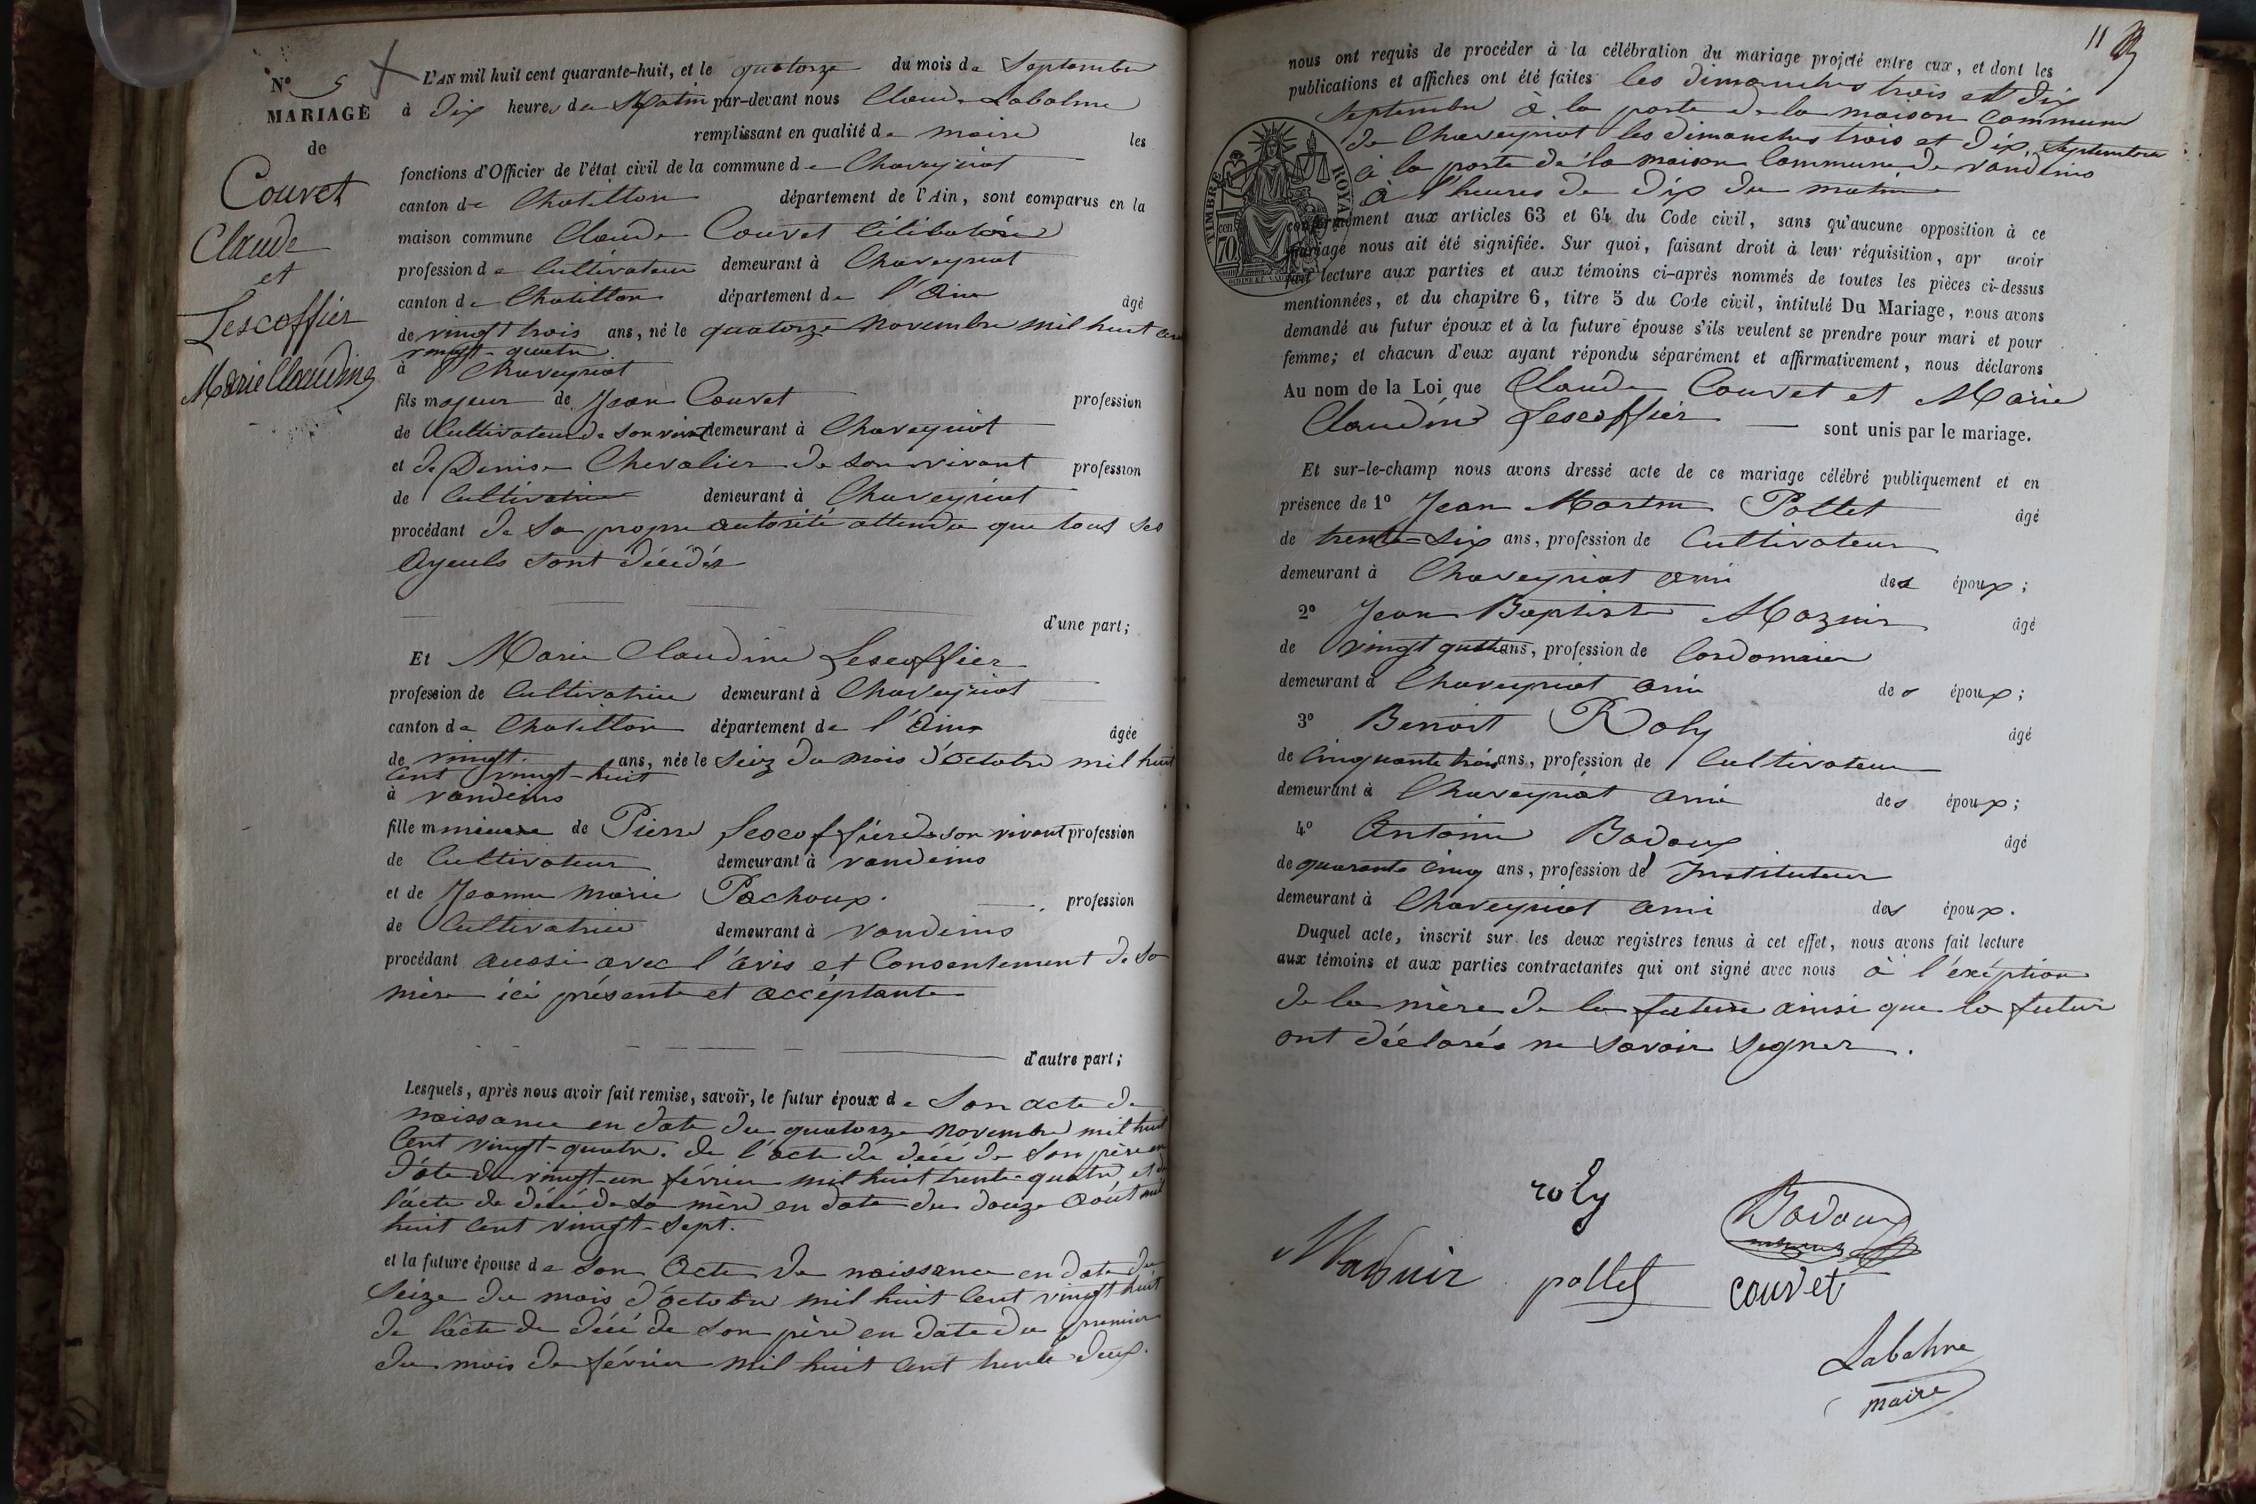 N.º 5
MARIAGE
de
Couvet
Claude
et
Lescoffier
Marie Claudine
L'AN mil huit cent quarante-huit, et le quatorze du mois de Septembre
à dix heures du Matin par-devant nous Claude Labalme
remplissant en qualité de maire les
fonctions d'Officier de l'état civil de la commune de Chaveyriat
canton de Chatillon département de l'Ain, sont comparus en la
maison commune Claude Couvet Célibataire
profession de Cultivateur demeurant à Chaveyriat
canton de Chatillon département de l'Ain âgé
de vingt trois ans, né le quatorze Novembre mil huit cent
vingt-quatre
à Chaveyriat
fils majeur de Jean Couvet profession
de Cultivateur de son vivant demeurant à Chaveyriat
et de Denise Chevalier de son vivant profession
de Cultivatrice demeurant à Chaveyriat
procédant de sa propre autorité attendu que tous ses
Ayeuls sont décédés
d'une part;
Et Marie Claudine Lescoffier
profession de Cultivatrice demeurant à Chaveyriat
canton de Chatillon département de l'Ain âgée
de vingt ans, née le Seiz du mois d'octobre mil huit
Cent vingt-huit
à vandeins
fille mineure de Pierre Lescoffier de son vivant profession
de Cultivateur demeurant à vandeins
et de Jeanne Marie Pachoux. profession
de Cultivatrice demeurant à vandeins
procédant aussi avec l'avis et Consentement de Sa
mère ici présente et accéptante
d'autre part;
Lesquels, après nous avoir fait remise, savoir, le futur époux de Son acte de
naissance en date du quatorze Novembre mil huit
Cent vingt-quatre. de l'acte de décé de Son père en
date du vingt-un février mil huit trente-quatre et de
l'acte de décé de Sa mère en date du douze Août mil
huit Cent vingt-sept.
et la future épouse de Son Acte de naissance en date du
Seize du mois d'octobre mil huit Cent vingt huit
de l'acte de décé de Son père en date du premier
du mois de février mil huit Cent trente deux.
11
nous ont requis de procéder à la célébration du mariage projeté entre eux, et dont les
publications et affiches ont été faites les dimanches trois et dix
Septembre à la porte de la maison Commune
de Chaveyriat les dimanches trois et dix Septembre
à la porte de la maison Commune de vandeins
à l'heures de dix du matin
TIMBRE ROYAL
70 cen
conformément aux articles 63 et 64 du Code civil, sans qu'aucune opposition à ce
mariage nous ait été signifiée. Sur quoi, faisant droit à leur réquisition, apr avoir
fait lecture aux parties et aux témoins ci-après nommés de toutes les pièces ci-dessus
mentionnées, et du chapitre 6, titre 5 du Code civil, intitulé Du Mariage, nous avons
demandé au futur époux et à la future épouse s'ils veulent se prendre pour mari et pour
femme; et chacun d'eux ayant répondu séparément et affirmativement, nous déclarons
Au nom de la Loi que Claude Couvet et Marie
Claudine Lescoffier sont unis par le mariage.
Et sur-le-champ nous avons dressé acte de ce mariage célébré publiquement et en
présence de 1º Jean Martin Pollet âgé
de trente-six ans, profession de Cultivateur
demeurant à Chaveyriat ami des époux;
2º Jean Baptiste Maznir âgé
de vingt quatre ans, profession de Cordonnier
demeurant à Chaveyriat ami des époux;
3º Benoit Roly âgé
de Cinquante trois ans, profession de Cultivateur
demeurant à Chaveyriat ami des époux;
4º Antoine Badoux âgé
de quarante cinq ans, profession de Instituteur
demeurant à Chaveyriat ami des époux.
Duquel acte, inscrit sur les deux registres tenus à cet effet, nous avons fait lecture
aux témoins et aux parties contractantes qui ont signé avec nous à l'exéption
de la mère de la future ainsi que la futur
ont déclarés ne savoir Segner.
roly
Badoux
Maznir pollet couvet
Labalme
maire